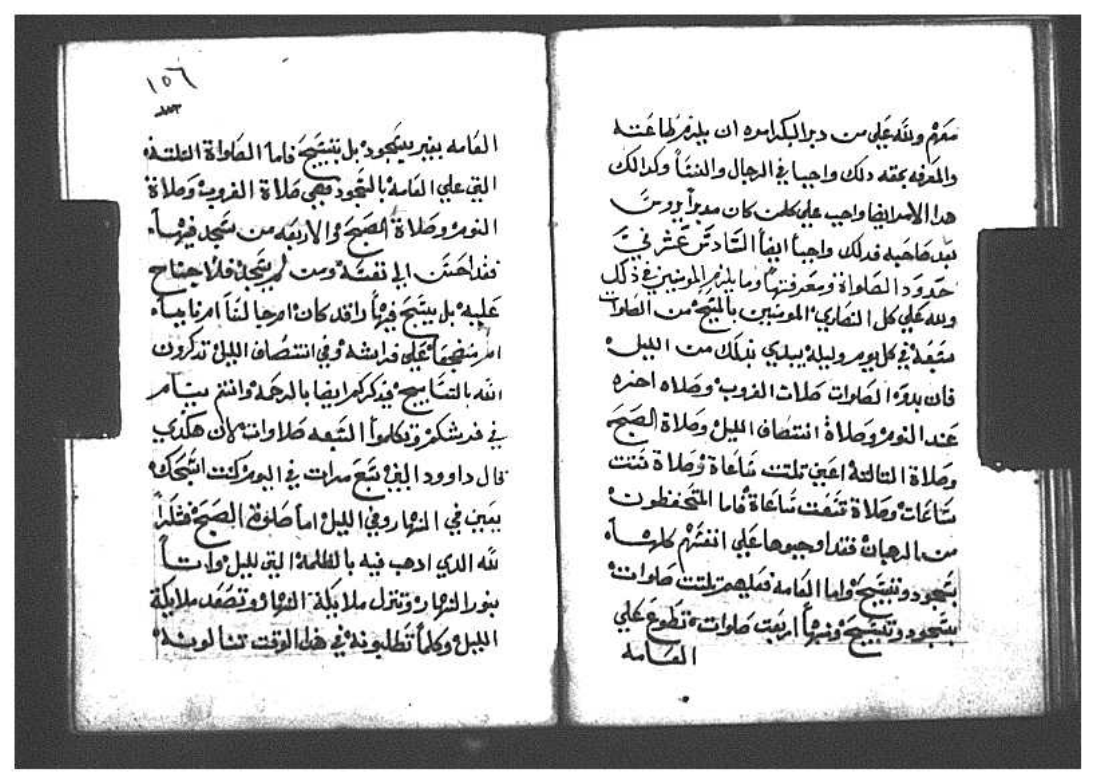 معرم ولله علي من دبر البكدامره ان يلزم طاعته
والمعرفه بحقه دلك واجبا في الرجال والنسا وكدالك
هدا الامر ايضا واجب علي كلمن كان مدبرا يروس
بعد صاحبه فدلك واجبا ايضا السادس عشر في
حدود الصلواة ومعرفتها وما يلزم المومنين في ذلك
ولله علي كل النصاري المومنين بالمسيح من الصلوات
سبعة في كل يوم وليله يبدي بدلك من الليل
فان بدو الصلوات صلات الغروب وصلاه اخره
عند النوم وصلاة انتصاف الليل وصلاة الصبح
وصلاة التالتة اعني تلتت ساعاة وصلاة ستت
ساعات وصلاة تسعت ساعاة فاما المتحفظون
من الرهبان فقد اوجبوها علي انفسهم كلها
بسجود وتسبيح واما العامه فعليهم تلتت صلوات
بسجود وتسبيح ومنها اربعت صلوات تطوع علي
العامه
١٥٦
العامه بغير سجود بل بتسبيح فاما الصلواة التلتة
التي علي العامه بالسجود فهي صلاة الغروب وصلاة
النوم وصلاة الصبح والاربعه من سجد فيها
فقد احسن الي نفسه ومن لم يسجد فلا جناح
عليه بل يسبح فيها واقد كان امرحا لسا امرنا جيا
امر مضجعا علي فراشه وفي انتصاف الليل تدكرون
الله بالتسابيح فيدكركم ايضا بالرحمه وانتم نيام
في فرشكم وتكلموا السبعه صلاوات لان هكدي
قال داوود النبي سبع مرات في اليوم كنت اسبحك
يبين في النهار وفي الليل اما صلوة الصبح فشكرا
لله الدي ادهب فيه بالظلمة التي لليل واتا
بنور النهار وتنزل ملايكة النهار وتصعد ملايكة
الليل وكلما تطلبونه في هدا الوقت تنالونه